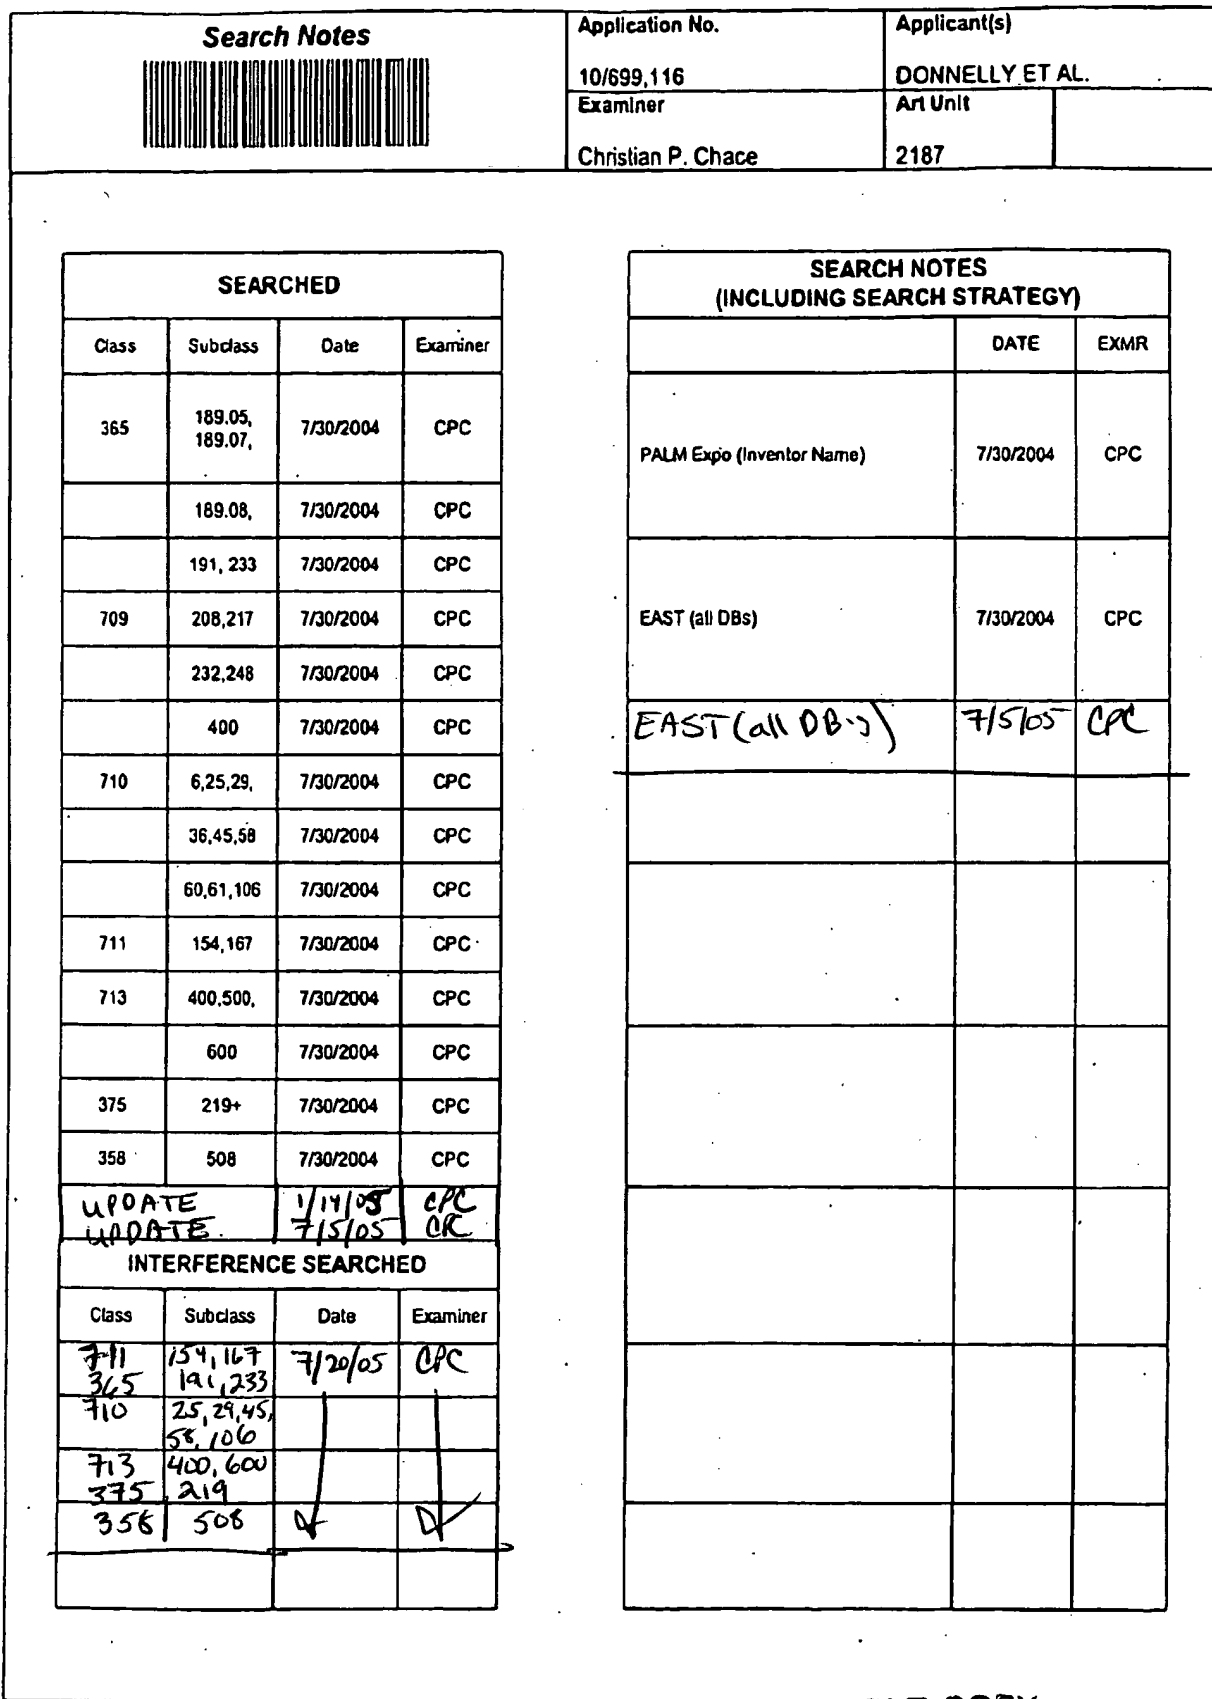 Search Notes
Application No.
Applicant(s)
10/699,116
DONNELLY ET AL.
Examiner
Art Unit
Christian P. Chace
2187
SEARCHED
Class Subclass Date Examiner
365 189.05, 189.07, 7/30/2004 CPC
189.08, 7/30/2004 CPC
191, 233 7/30/2004 CPC
709 208,217 7/30/2004 CPC
232,248 7/30/2004 CPC
400 7/30/2004 CPC
710 6,25,29, 7/30/2004 CPC
36,45,58 7/30/2004 CPC
60,61,106 7/30/2004 CPC
711 154,167 7/30/2004 CPC
713 400,500, 7/30/2004 CPC
600 7/30/2004 CPC
375 219+ 7/30/2004 CPC
358 508 7/30/2004 CPC
UPDATE 1/14/05 CPC
UPDATE 7/5/05 CPC
INTERFERENCE SEARCHED
Class Subclass Date Examiner
711 154, 167 7/20/05 CPC
365 191, 233
710 25, 29, 45,
58, 106
713 400, 600
375 219
358 508
SEARCH NOTES
(INCLUDING SEARCH STRATEGY)
DATE EXMR
PALM Expo (Inventor Name) 7/30/2004 CPC
EAST (all DBs) 7/30/2004 CPC
EAST (all DB's) 7/5/05 CPC
COPY